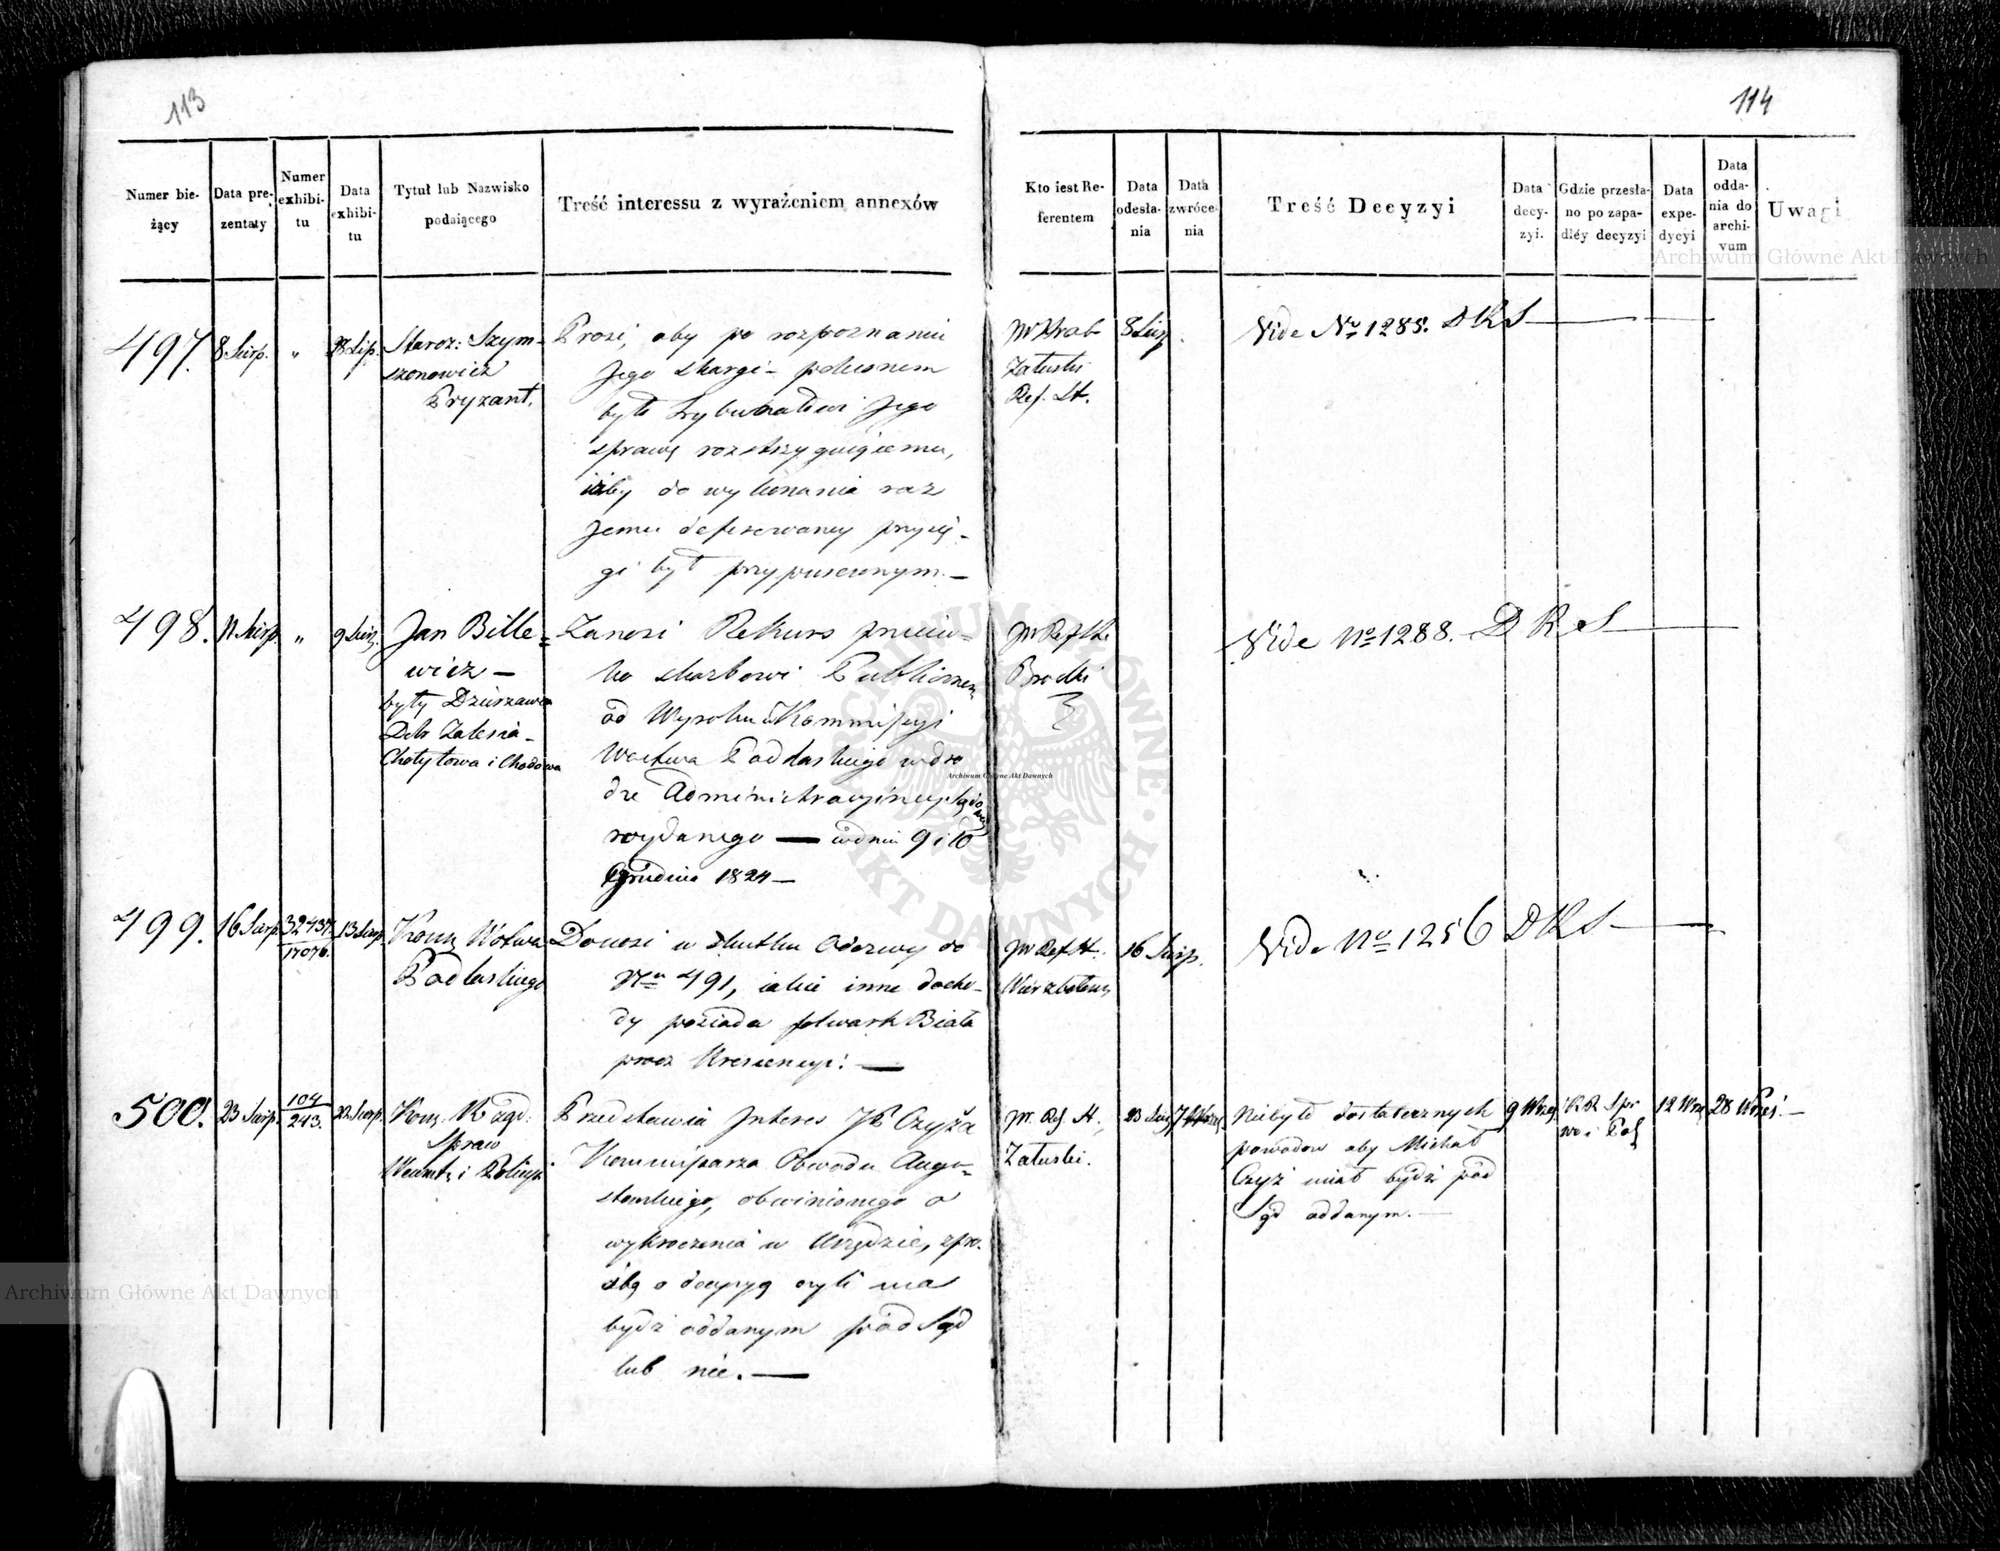 113
114
Numer bieżący
Data prezentaty
Numer exhibitu
Data exhibitu
Tytuł lub Nazwisko podaiącego
Treść interessu z wyrażeniem annexów
Kto iest Referentem
Data odesłania
Data zwrócenia
Treść Decyzyi
Data decyzyi.
Gdzie przesłano po zapadłéy decyzyi
Data expedycyi
Data oddania do archivum
Uwagi
497. 8 Sierp. „ 28 Lip.
Staroz: Szym-
szonowicz
Pryzant.
Prosi, aby po rozpoznaniu
Jego skargi – poleconem
było Trybunałowi Jego
sprawę rozstrzygaiącemu,
iżby do wykonania raz
Jemu deferowaney przysię-
gi był przypuszczonym. —
JW Hrab
Załuski
Ref. St.
8 Sierp.
Vide No 1285. DRS —
498. 11 Sierp. „ 9 Sierp.
Jan Bille-
wicz —
były Dzierżawca
Dóbr Zalesia –
Chotyłowa i
Zanosi Rekurs przeciw-
ko skarbowi Publicznemu
od Wyroku Kommissyi
Wodztwa Podlaskiego w dro
dze Administracyiney Sądowey
wydanego — w dniu 9 i 10
Grudnia 1824 —
JW Ref. St.
Brocki
Vide No 1288. D R S —
499. 16 Sierp. 32437/17076. 13 Sierp.
Kom: Wodztwa
Podlaskiego
Donosi w skutku Odezwy do
Nru 491, iakie inne docho-
dy posiada folwark Biała
procz Krescencyi: —
JW Ref. St.
16 Sierp.
Vide No 1256 DRS —
500. 23 Sierp. 104/243. 22 Sierp.
Kom: Rząd:
Spraw
Wewnt: i Policyi
Przedstawia Interes JP Czyża
Kommissarza Obwodu Augu-
stowskiego, obwinionego o
wykroczenia w Urzędzie, z pro-
śbą o decyzyą czyli ma
bydź oddanym pod Sąd
lub nie. —
JW. Ref. St.
Załuski.
23 Sierp
7 Wrześ
Niebyło dostatecznych
powodow aby Michał
Czyż miał bydź pod
Sąd oddanym. —
9 Wrześ
KR Spr
w i Pol
12 Wrz
28 Wrześ: —
Archiwum Główne Akt Dawnych
Archiwum Główne Akt Dawnych
Archiwum Główne Akt Dawnych
ARCHIWUM GŁÓWNE · AKT DAWNYCH ·